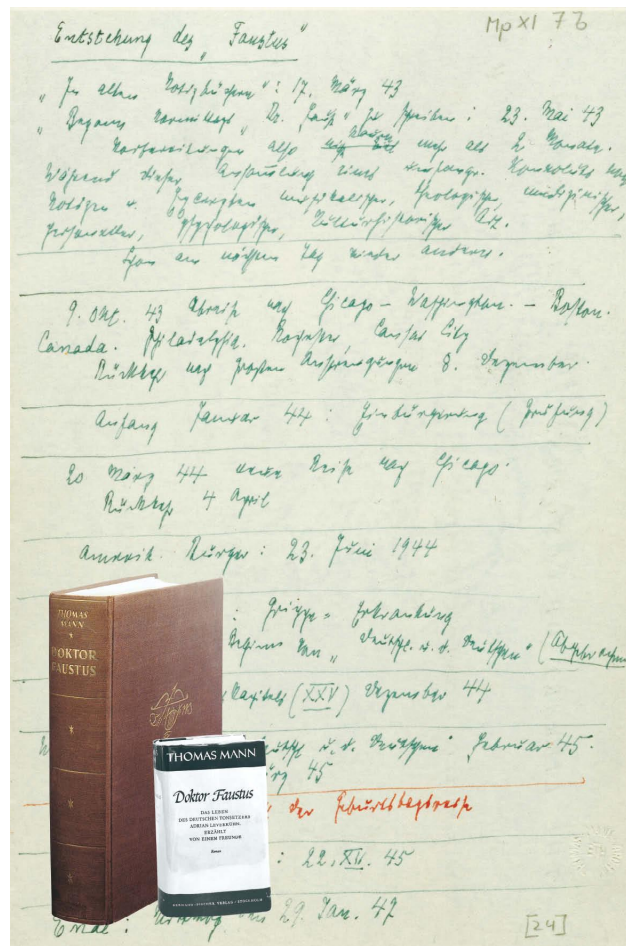 Mp XI 76
Entstehung des „Faustus“
„In alten Notizbüchern“: 17. März 43
„Beginn vormittags „Dr. Faust“ zu schreiben: 23. Mai 43
Vorbereitungen also kaum mehr als 2 Monate.
Während dieser Ansammlung eines umfangr. Konvoluts von
Notizen u. Excerpten musikalischer, theologischer, medizinischer,
personeller, psychologischer, kulturhistorischer Art.
am nächsten Tag wieder anders.
9. Okt. 43 Abreise nach Chicago – Washington. – Boston.
Canada. Philadelphia. Rochester Cansas City
Rückkehr nach großen Anstrengungen 8. Dezember.
Anfang Januar 44: Einbürgerung (Prüfung)
20 März 44 neue Reise nach Chicago.
Rückkehr 4 April
Amerik. Bürger: 23. Juni 1944
: Grippe-Erkrankung
Beginn von „Deutschl. u. d. Deutschen“ (Abgebrochen
Kapitels (XXV) Dezember 44
u. d. Deutschen“ Februar 45.
45
der Geburtstagsreise
: 22. XII. 45
Ende: 29. Jan. 47
[24]
THOMAS
MANN
DOKTOR
FAUSTUS
THOMAS MANN
Doktor Faustus
DAS LEBEN
DES DEUTSCHEN TONSETZERS
ADRIAN LEVERKÜHN,
ERZÄHLT
VON EINEM FREUNDE
Roman
BERMANN-FISCHER VERLAG / STOCKHOLM